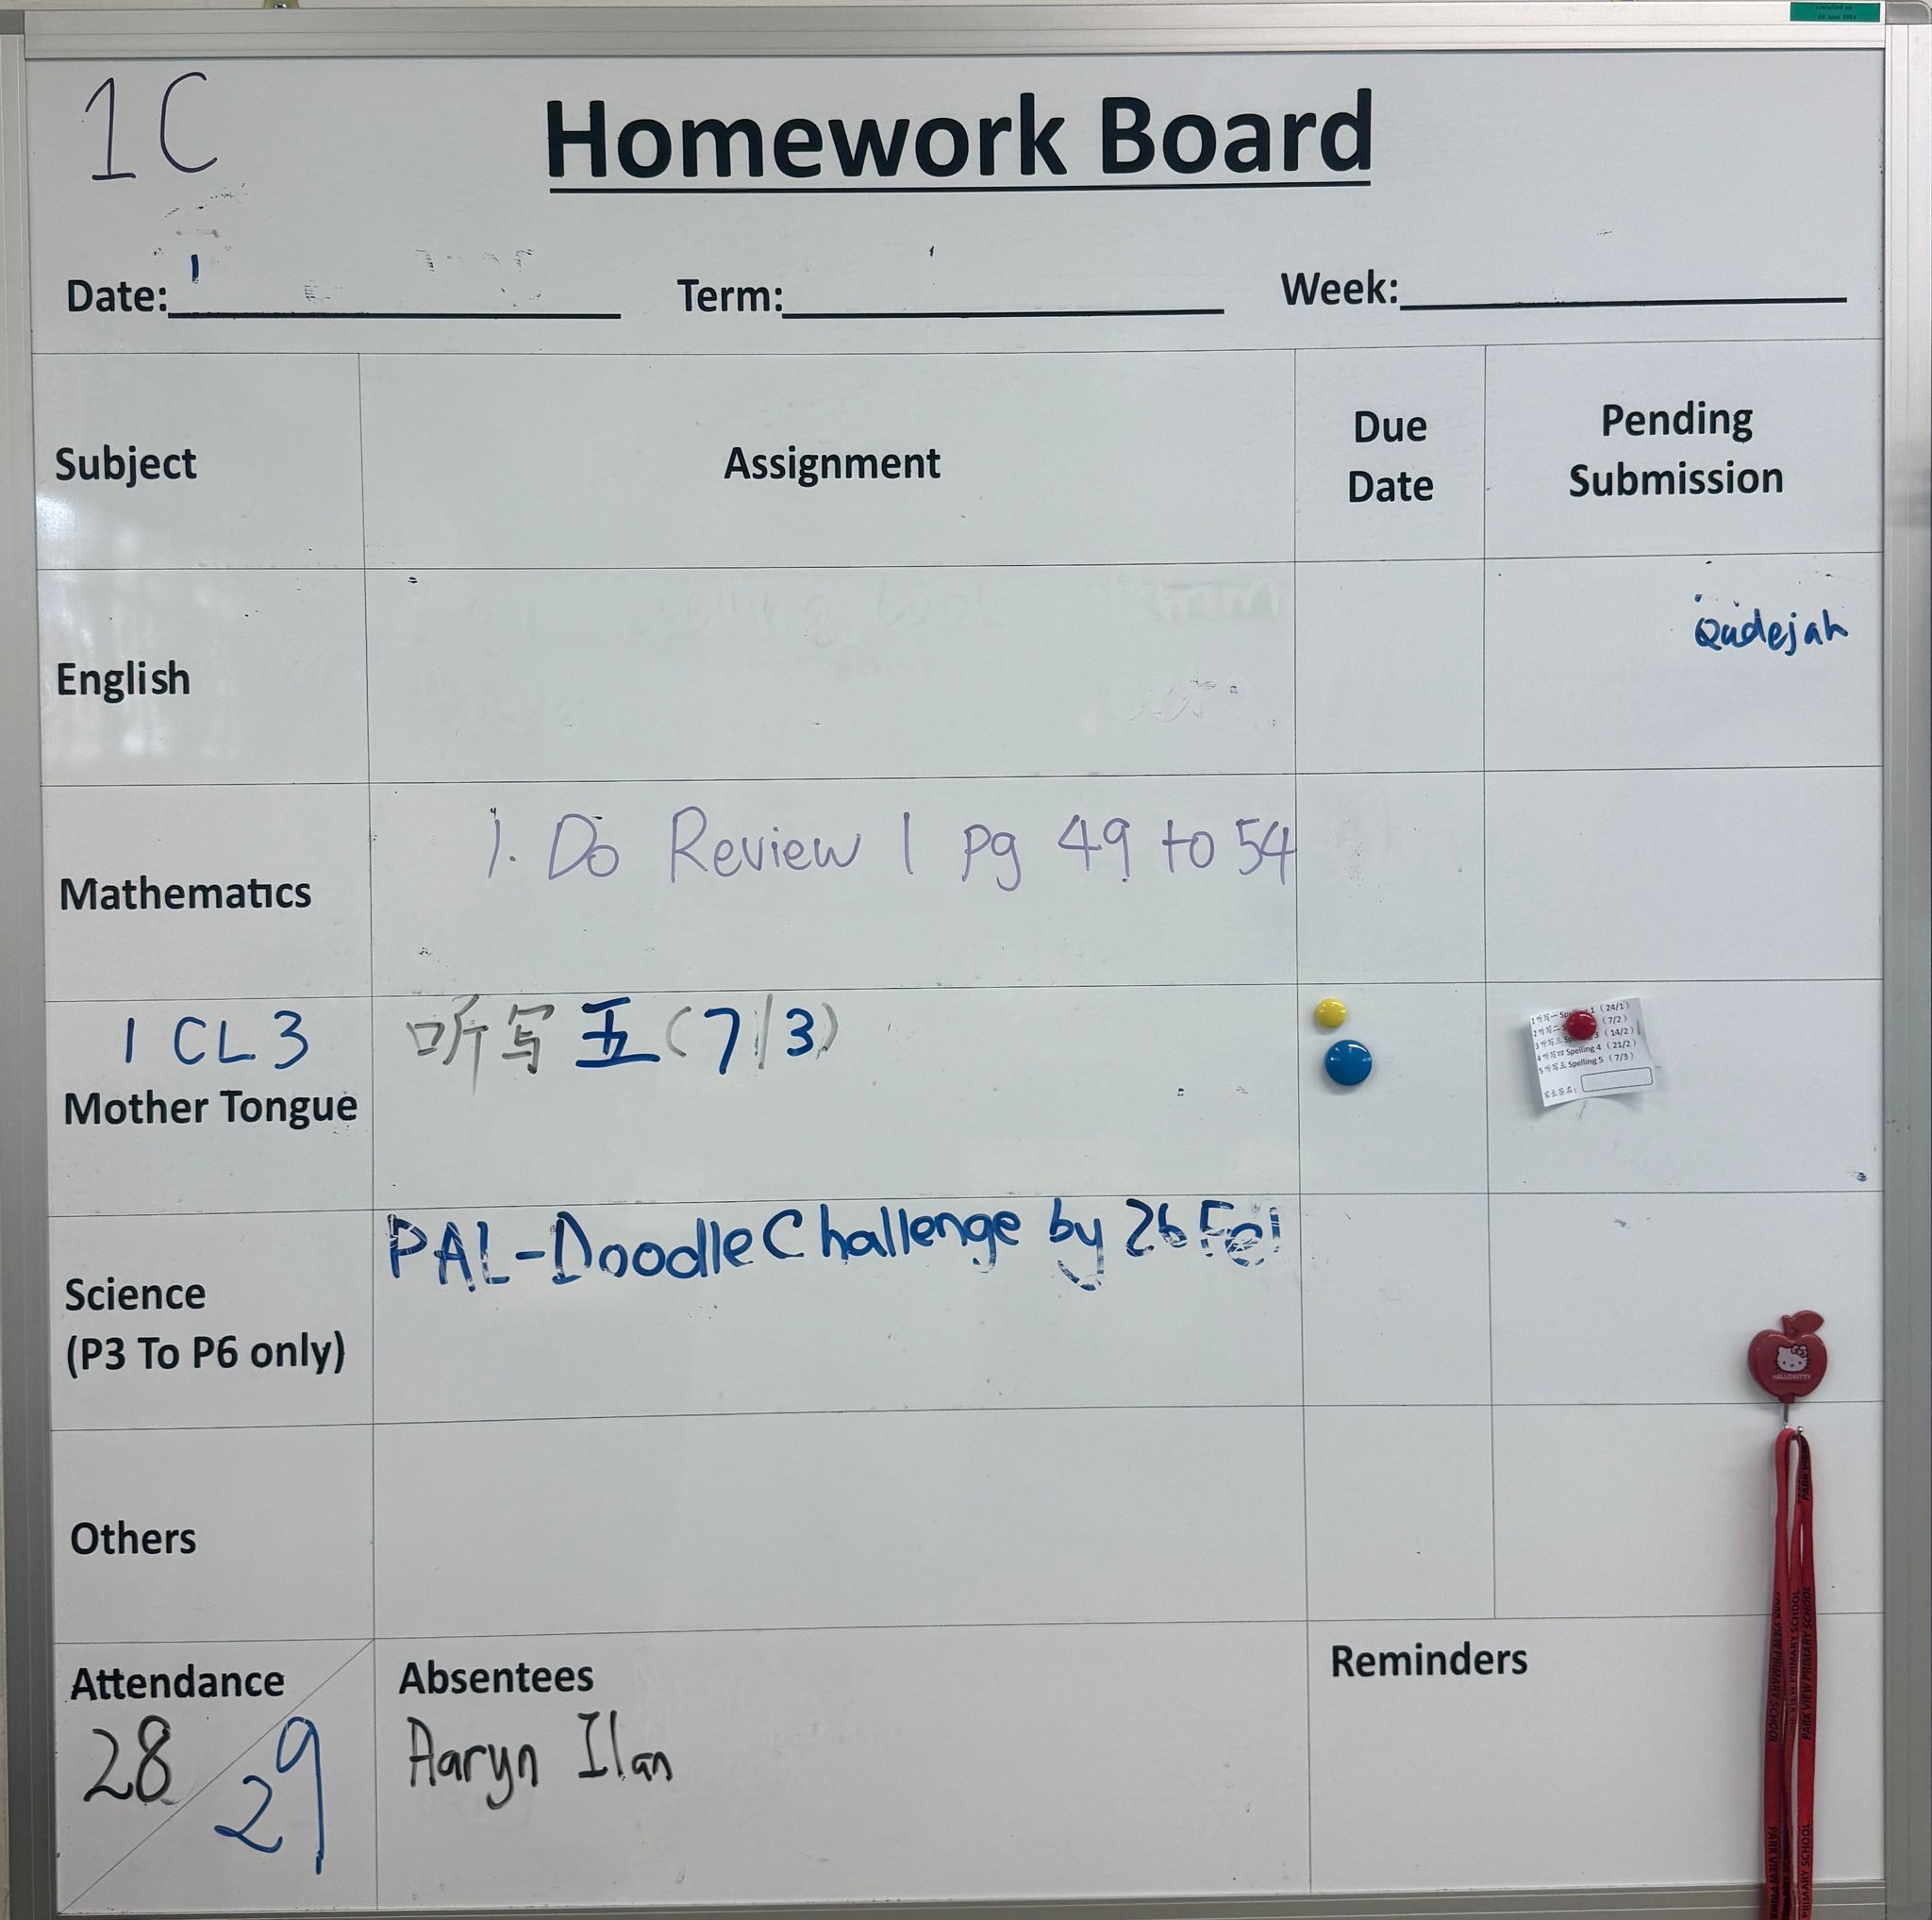 1C
Homework Board
Date: Term: Week:
Subject Assignment Due Date Pending Submission
English Qudejah
Mathematics 1. Do Review 1 pg 49 to 54
1 CL3
Mother Tongue
听写五(7/3)
1 听写一 (24/1)
2 听写二 (7/2)
3 听写三 (14/2)
4 听写四 Spelling 4 (21/2)
5 听写五 Spelling 5 (7/3)
家长签名:
Science
(P3 To P6 only)
PAL-Doodle Challenge by 26 Feb
HELLO KITTY
Others
Attendance
28
29
Absentees
Aaryn Ilan
Reminders
PARK VIEW PRIMARY SCHOOL